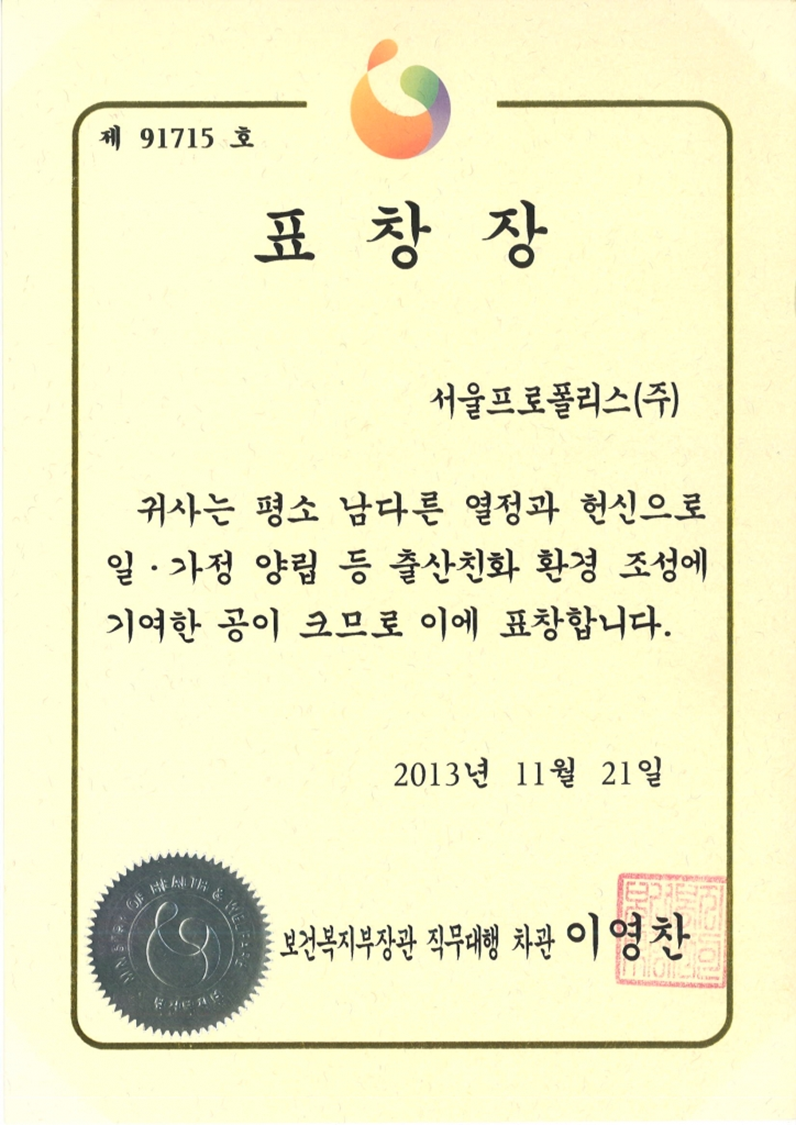 제 91715 호
표 창 장
서울프로폴리스(주)
귀사는 평소 남다른 열정과 헌신으로
일·가정 양립 등 출산친화 환경 조성에
기여한 공이 크므로 이에 표창합니다.
2013년 11월 21일
MINISTRY OF HEALTH & WELFARE
보건복지부
보건복지부장관 직무대행 차관 이영찬